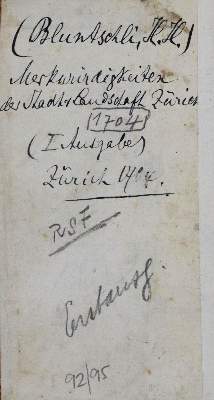 (Bluntschli, H. H.)
Merkwürdigkeiten
der Stadt u Landschaft Zürich
1704
(I Ausgabe)
Zürich 1704.
RSF
Eintausch.
92/95